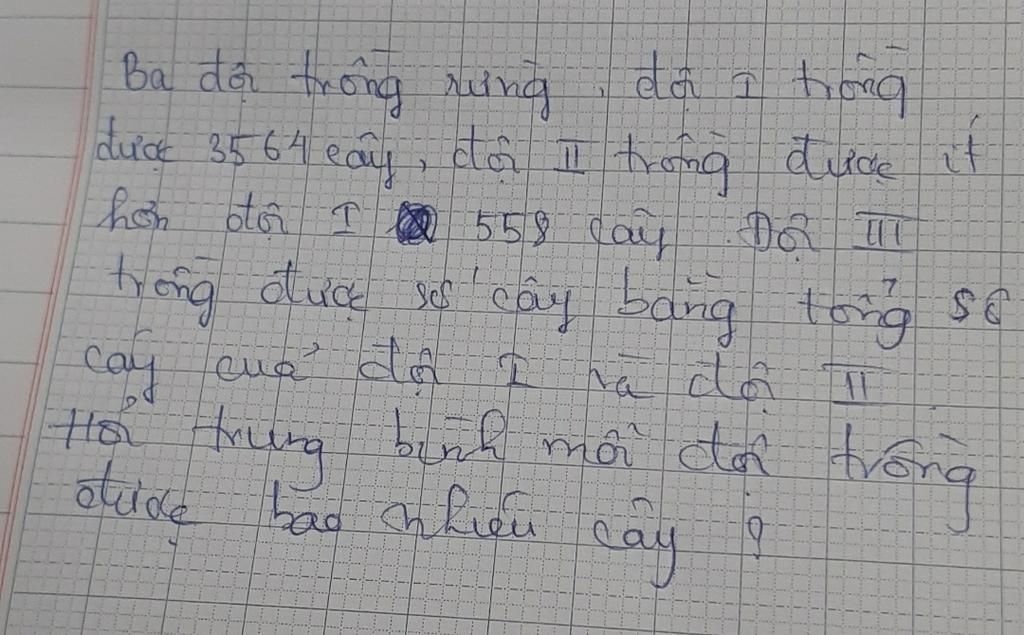 Ba đội trồng rừng, đội I trồng
được 3564 cây, đội II trồng được ít
hơn đội I 558 cây. Đội III
trồng được số cây bằng tổng số
cây của đội I và đội II
Hỏi trung bình mỗi đội trồng
được bao nhiêu cây ?